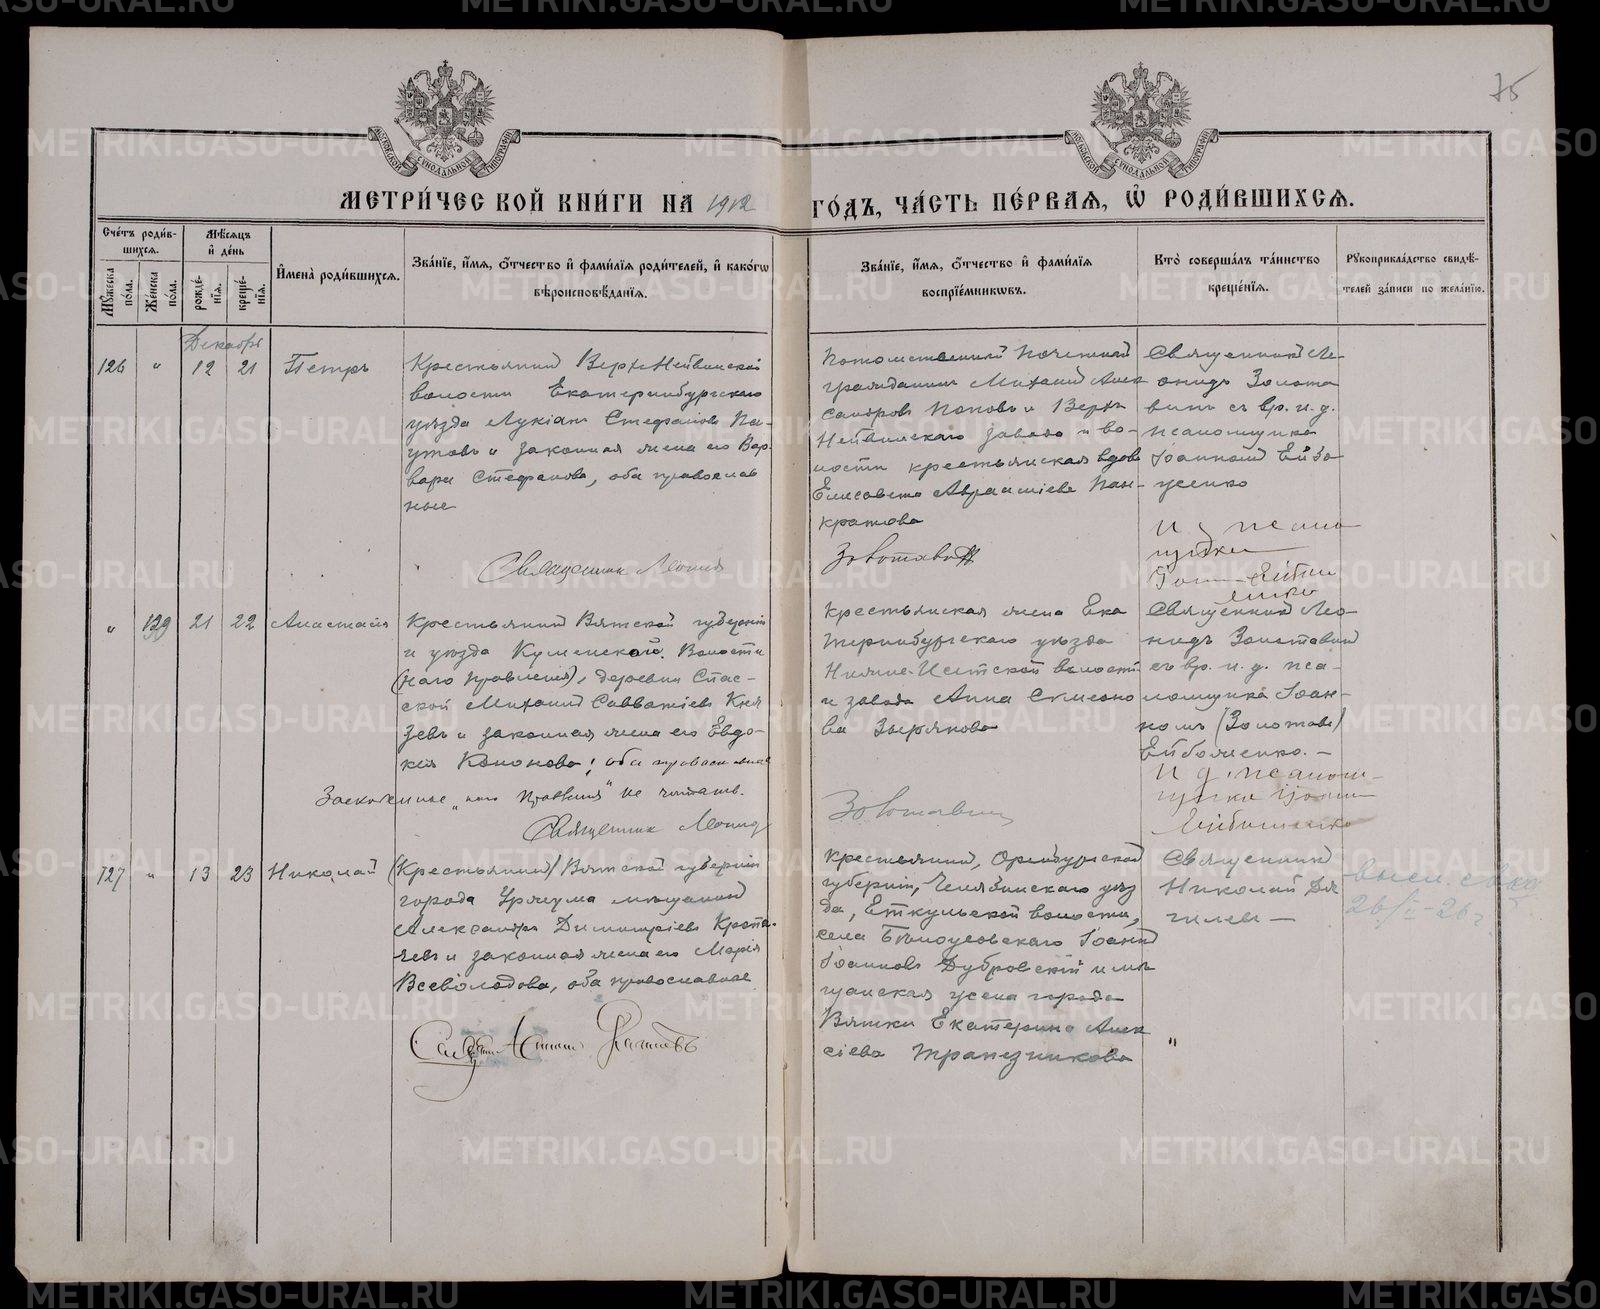 75
МЕТРИ́ЧЕСКОЙ КНИ́ГИ НА 1912 ГО́ДЪ, ЧА́СТЬ ПЕ́РВАѦ, Ѡ҆ РОДИ́ВШИХСѦ.
Сче́тъ роди́в-
шихсѧ.
Мꙋжеска по́ла.
Же́нска по́ла.
Мѣ́сѧцъ
и҆ де́нь
рожде́-
нїѧ.
креще́-
нїѧ.
И҆мена̀ роди́вшихсѧ.
Зва́нїе, и҆́мѧ, ѻ҆́тчество и҆ фами́лїѧ роди́телей, и҆ како́гѡ
вѣроисповѣ́данїѧ.
Зва́нїе, и҆́мѧ, ѻ҆́тчество и҆ фами́лїѧ
воспрїе́мникѡвъ.
Кто̀ соверша́лъ та́инство
креще́нїѧ.
Рꙋкоприкла́дство свидѣ́-
телей за́писи по жела́нїю.
Декабрь
126 " 12 21 Петръ
Крестьянинъ Верх-Нейвинской
волости Екатеринбургскаго
уѣзда Лукіанъ Стефановъ Па-
утовъ и законная жена его Вар-
вара Стефанова, оба православ
ные
Священникъ Леонидъ
Потомственный почетный
гражданинъ Михаилъ Алек
сандровъ Поповъ и Верхъ
Нейвинскаго завода и во-
лости крестьянская вдова
Елисавета Авраміева Пан-
кратова
Золотавинъ
Священникъ Ле-
онидъ Золота
винъ съ вр. и. д.
псаломщика
Іоанномъ Ейбо
женко
И д псалом
щика
" 129 21 22 Анастасія
Крестьянинъ Вятской губерніи
и уѣзда Куменской Волости
(наго правленія), деревни Спас-
ской Михаилъ Савватіевъ Кня
зевъ и законная жена его Евдо-
кія Кононова; оба православные
Заскобленное „наго правленія" не читать.
Священникъ Леонидъ
Крестьянская жена Ека
теринбургскаго уѣзда
Нижне-Исетской волости
и завода Анна Симеоно
ва Зырянова
Золотавинъ
Священникъ Лео-
нидъ Золотавинъ
съ вр. и. д. пса-
ломщика Іоан-
номъ (Золотав)
И д. псалом-
щика Іоанн
127 " 13 23 Николай
(Крестьянинъ) Вятской губерніи
города Уржума мѣщанинъ
Александръ Димитріевъ Кропа-
чевъ и законная жена его Марія
Всеволодова, оба православные
Крестьянинъ, Оренбургской
губерніи, Челябинскаго уѣз
да, Еткульской волости,
села Бѣлоусовскаго Іоаннъ
Іоанновъ Дубровскій и мѣ
щанская жена города
Вятки Екатерина Алек
сіева Трапезникова
Священникъ
Николай Дя
гилевъ —
"
26/II-26 г.